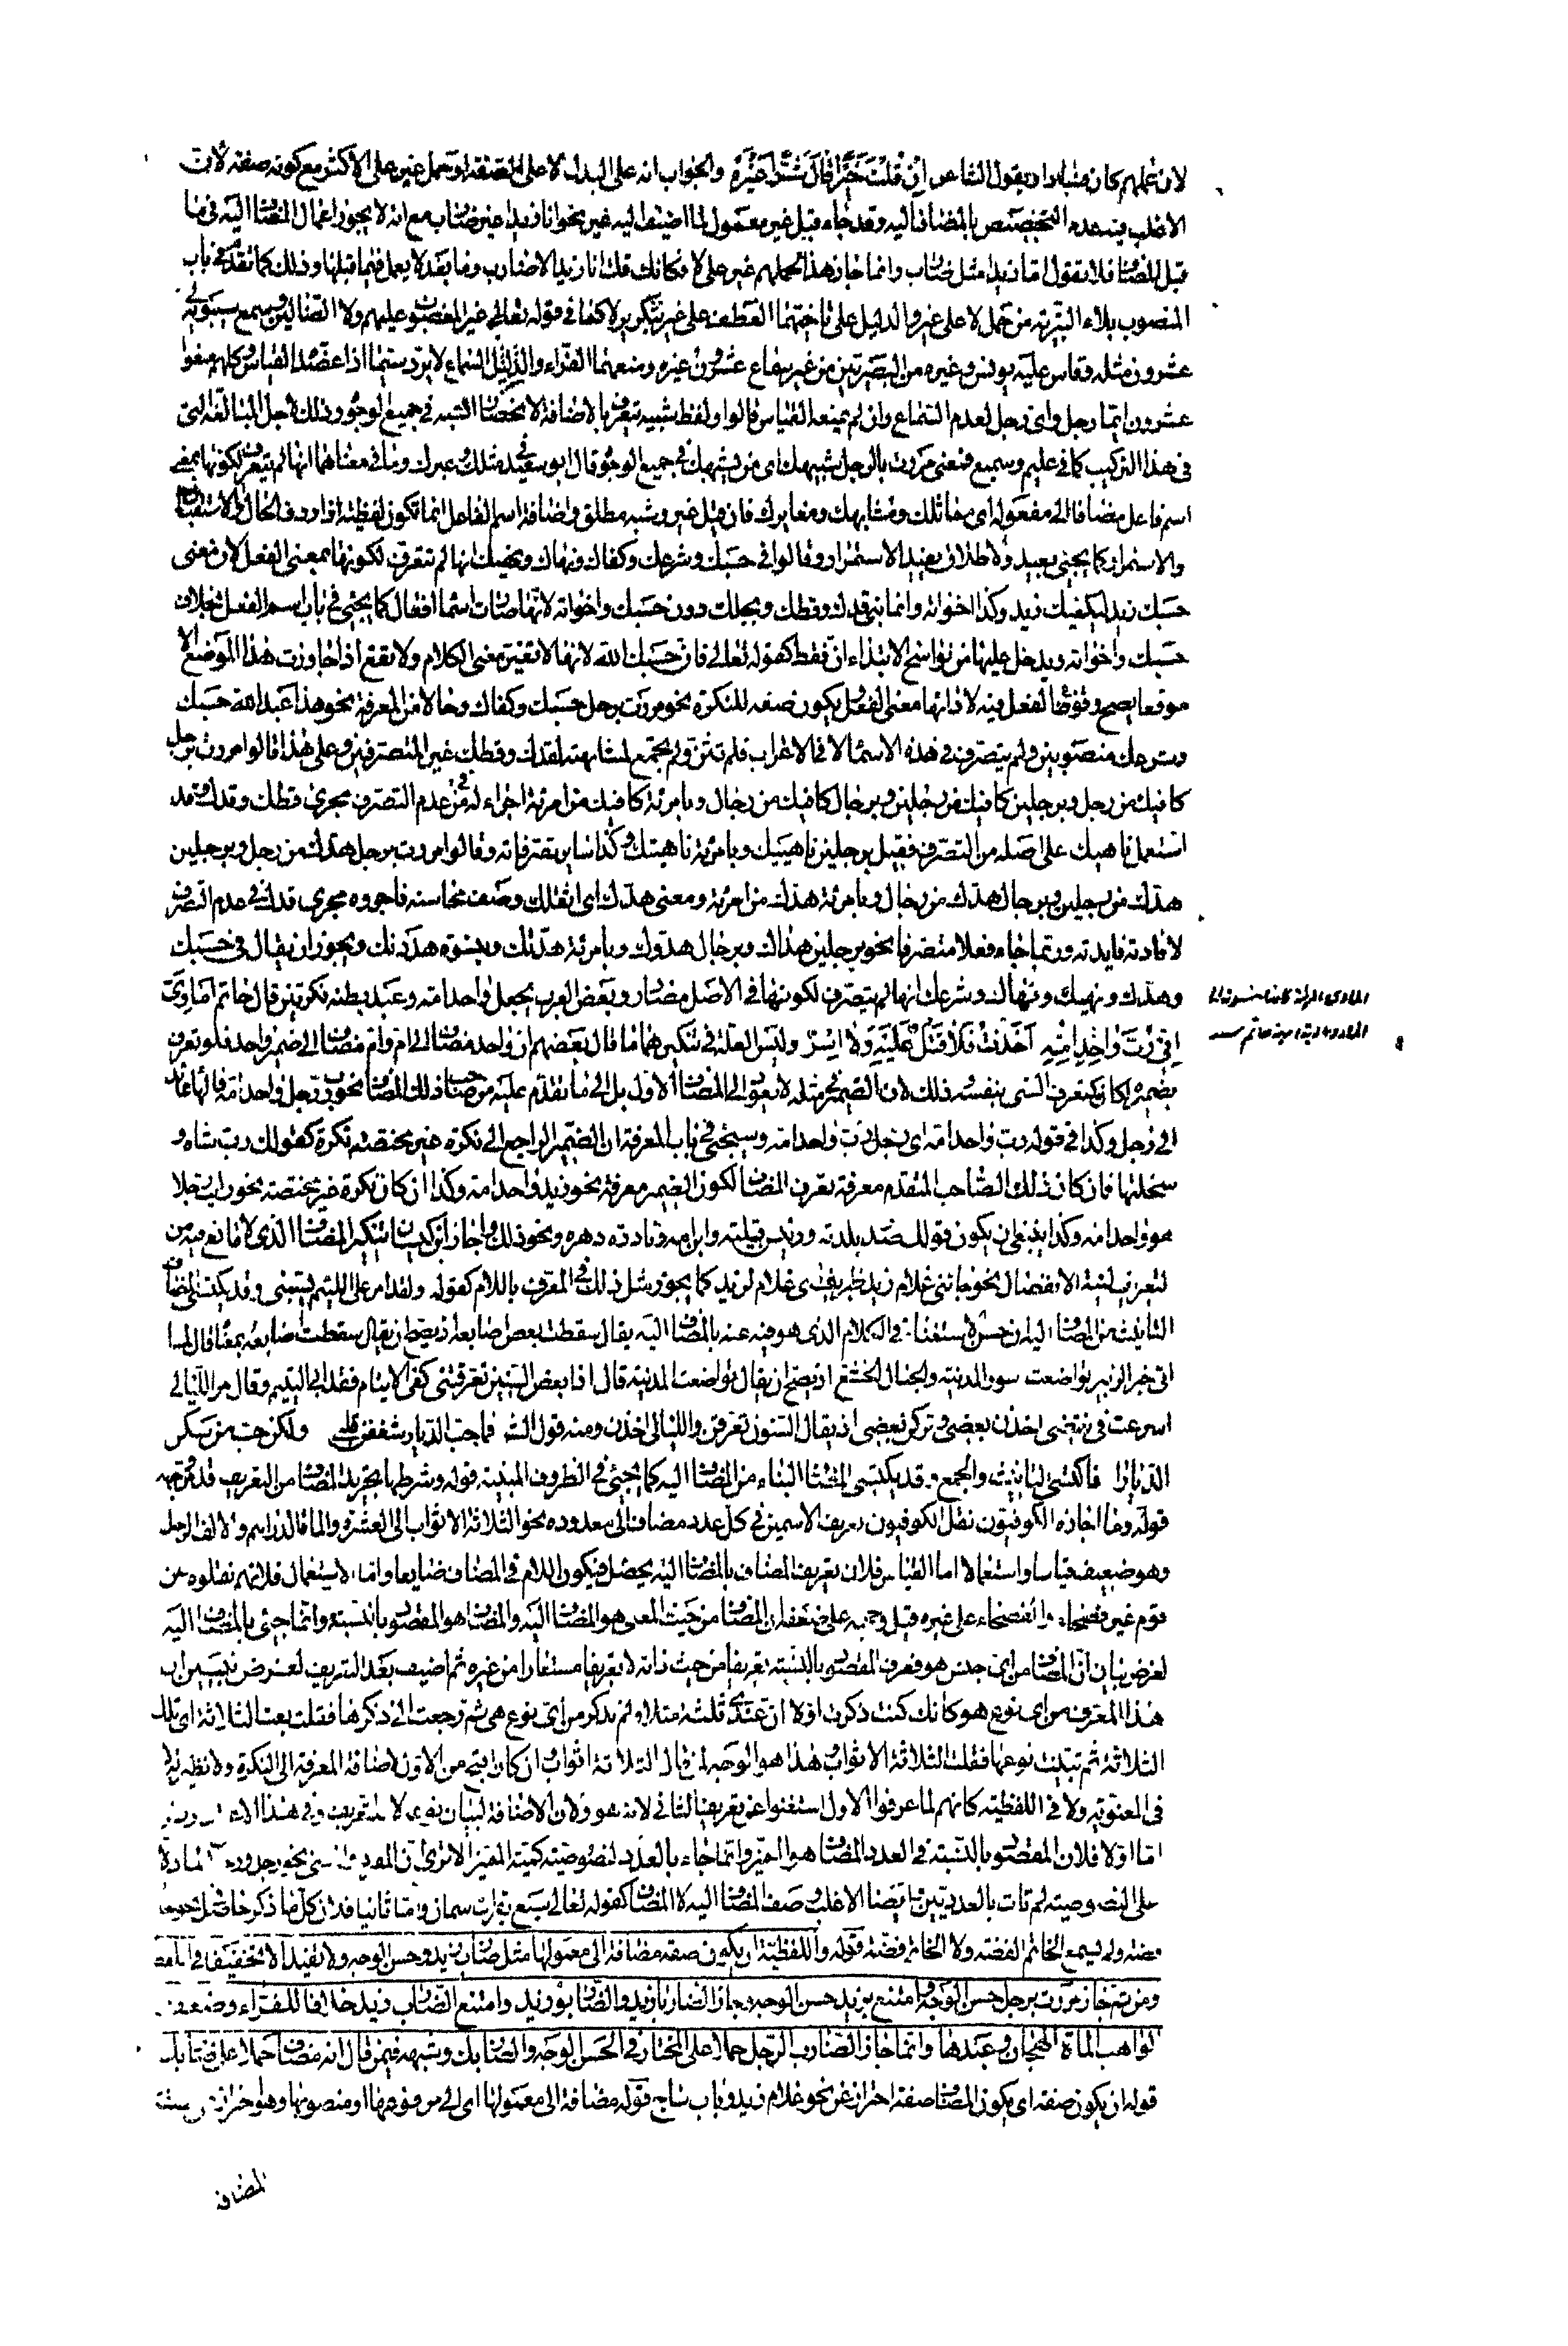 الاغلب فيه عدم التخصيص بالمضاف اليه وقد جاء قبل غير معمول لما اضيف اليه غير نحو انا زيدا غير ضارب مع انه لا يجوز اعمال المضاف اليه فيما
قبل المضاف فلا تقول انا زيدا مثل ضارب وانما جاز هذا لحملهم غير على لا فكانك قلت انا زيدا لا ضارب وما بعد لا يعمل فيما قبلها وذلك كما تقدم في باب
المنصوب بلاء التبرئة من حمل لا على غير والدليل على تاخيهما العطف على غير بتكرير لا كما في قوله تعالى غير المغضوب عليهم ولا الضالين وسمع سيبويه
عشرون مثله وقاس عليه يونس وغيره من البصريين من غير سماع عشرون غيره ومنعهما الفراء والدليل السماع لا يرد سيما اذا عضد القياس كلهم منعوا
عشرون ايما رجل واي رجل لعدم السماع وان لم يمنعه القياس قالوا ولفظ شبيه تتعرف بالاضافة لانحصار الشبه في جميع الوجوه وذلك لاجل المبالغة التي
في هذا التركيب كما في عليم وسميع فمعنى مررت بالرجل شبيهك اي من يشبهك في جميع الوجوه قال ابو سعيد في مثلك وغيرك وما في معناهما انها لم يتعرف لكونها بمعنى
اسم فاعل مضافا الى مفعوله اي مماثلك ومشابهك ومغايرك فان قيل غير وشبه مطلق واضافة اسم الفاعل انما تكون لفظية اذا اردت الحال او الاستقبال
والاستمرار كما يجئ بعيد والاطلاق يفيد الاستمرار وقالوا في حسبك وشرعك وكفاك ونهاك انها لم تتعرف لكونها بمعنى الفعل لان معنى
حسبك زيد ليكفيك زيد وكذا اخواته وانما بني قدك وقطك وبجلك دون حسبك واخواته لانها صارت اسماء افعال كما يجئ في باب اسم الفعل بخلاف
حسبك واخواته ويدخل عليها من نواسخ الابتداء ان فقط كقوله تعالى فان حسبك الله لانها لا تغير معنى الكلام ولا تقع اذا جاوزت هذا الموضع الا
موقعا يصح وقوع الفعل فيه لاداتها معنى الفعل فيكون صفة للنكرة نحو مررت برجل حسبك وكفاك وحالا من المعرفة نحو هذا عبد الله حسبك
وشرعك منصوبين ولم يتصرف في هذه الاسماء الا في الاعراب فلم تثن ولم تجمع لمشابهته لقدك وقطك غير المتصرفين وعلى هذا قالوا مررت برجل
كافيك من رجل وبرجلين كافيك من رجلين وبرجال كافيك من رجال وبامرءة كافيك من امرءة اجراء له في عدم التصرف مجرى قطك وقدك وقد
استعمل ناهيك على اصله من التصرف فقيل برجلين ناهييك وبامرءة ناهيتك وكذا ساير تصرفاته وقالوا مررت برجل هدك من رجل وبرجلين
هدك من رجلين وبرجال هدك من رجال وبامرءة هدك من امرءة ومعنى هدك اي اثقلك وصف محاسنه فاجروه مجرى قدك في عدم التصرف
لافادته فايدته وربما جاء فعلا متصرفا نحو برجلين هداك وبرجال هدوك وبامرءة هدتك وبنسوة هددنك ويجوز ان يقال في حسبك
وهدك ونهيك ونهاك وشرعك انها لم يتصرف لكونها في الاصل مصادر وبعض العرب يجعل واحد امه وعبد بطنه نكرتين قال حاتم اماوي
اني رب واحد امه اخذت فلا قتل عليه ولا اسر وليس العلة في تنكيرهما ما قال بعضهم ان واحد مضاف الى ام وام مضاف الى ضمير واحد فلو تعرف
بضميره لكان كتعرف الشئ بنفسه وذلك لان الضمير في مثله لا يعود الى المضاف الاول بل الى ما تقدم عليه من صاحب ذلك المضاف نحو رب رجل واحد امه فالهاء عائد
الى رجل وكذا في قوله رب واحد امه اي رب رجل واحد امه وسيجئ في باب المعرفة ان الضمير الراجع الى نكرة غير مختصة نكرة كقولك رب شاة و
سخلتها فان كان ذلك الصاحب المتقدم معرفة تعرف المضاف لكون الضمير معرفة نحو زيد واحد امه وكذا ان كان نكرة غير مختصة نحو رايت رجلا
هو واحد امه وكذا ينبغي ان يكون قولك صدر بلدته ورئيس قبيلته وابن امه ونادرة دهره ونحو ذلك واجاز ابن كيسان تنكير المضاف الذي لا مانع فيه من
لتعريف لنية الانفصال نحو جاءني غلام زيد ظريف اي غلام لزيد كما يجوز مثل ذلك في المعرف باللام كقوله ولقد امر على اللئيم يسبني وقد يكتسي المضاف
التانيث من المضاف اليه ان حسن الاستغناء في الكلام الذي هو فيه عنه بالمضاف اليه يقال سقطت بعض اصابعه اذ يصح ان يقال سقطت اصابعه بمعناه قال لما
اتى خبر الزبير تواضعت سور المدينة والجبال الخشع اذ يصح ان يقال تواضعت المدينة قال اذا بعض السنين تعرقتنا كفى الايتام فقد ابي اليتيم وقال مر الليالي
اسرعت في نقضي اخذن بعضي وتركن بعضي اذ يقال السنون تعرقن والليالي اخذن ومنه قول الش فما حب الديار شغفن قلبي ولكن حب من سكن
الديارا فاكتسى التانيث والجمع وقد يكتسي المضاف البناء من المضاف اليه كما يجئ في الظروف المبنية قوله وشرطها تجريد المضاف من التعريف قد مر وجهه
قوله وما اجازه الكوفيون نقل الكوفيون تعريف الاسمين في كل عدد مضاف الى معدوده نحو الثلاثة الاثواب الى العشرة والماة الدراهم والالف الرجل
وهو ضعيف قياسا واستعمالا اما القياس فلان تعريف المضاف بالمضاف اليه يحصل فيكون اللام في المضاف ضايعا واما الاستعمال فلانهم نقلوه عن
قوم غير فصحاء والفصحاء على غيره قيل وجهه على ضعفه ان المضاف من حيث المعنى هو المضاف اليه والمضاف هو المقصود بالنسبة وانما جئ بالمضاف اليه
لغرض بيان ان المضاف من اي جنس هو فعرف المقصود بالنسبة تعريفا من حيث ذاته لا تعريفا مستعارا من غيره ثم اضيف بعد التعريف لغرض تبيين ان
هذا المعرف من اي نوع هو كانك كنت ذكرت اولا ان عندي ثلثة مثلا ولم يذكر من اي نوع هي ثم رجعت الى ذكرها فقلت بعت الثلاثة اي تلك
الثلاثة ثم تبينت نوعها فقلت الثلاثة الاثواب هذا هو الوجه لمن قال الثلاثة اثواب وان كان اقبح من الاول لاضافة المعرفة الى النكرة ولا نظير لها
في المعنوية ولا في اللفظية كانهم لما عرفوا الاول استغنوا عن تعريف الثاني لانه هو ولان الاضافة لبيان نوعه لا للتعريف وفي هذا
اما اولا فلان المقصود بالنسبة في العدد المضاف هو المميز وانما جاء بالعدد لنصوصية كمية المميز الا ترى ان المعدود
على النصوصية لم تات بالعدد تبين وايضا الاغلب وصف المضاف اليه لا المضاف كقوله تعالى سبع بقرات سمان واما ثانيا فلان كل ما ذكر حاصل في نحو
فضة ولم يسمع الخاتم الفضة ولا الخاتم فضة قوله واللفظية ان يكون صفة مضافة الى معمولها مثل ضارب زيد وحسن الوجه ولا تفيد الا تخفيفا في اللفظ
ومن ثم جاز مررت برجل حسن الوجه وامتنع بزيد حسن الوجه وجاز الضاربا زيد والضاربو زيد وامتنع الضارب زيد خلافا للفراء وضعف
الواهب الماة الهجان وعبدها وانما جاز الضارب الرجل حملا على المختار في الحسن الوجه والضاربك وشبهه فيمن قال انه مضاف حملا على ضاربك
قوله ان يكون صفة اي يكون المضاف صفة احتراز عن نحو غلام زيد وباب ساج قوله مضافة الى معمولها اي الى مرفوعها او منصوبها وهو احتراز
المضاف